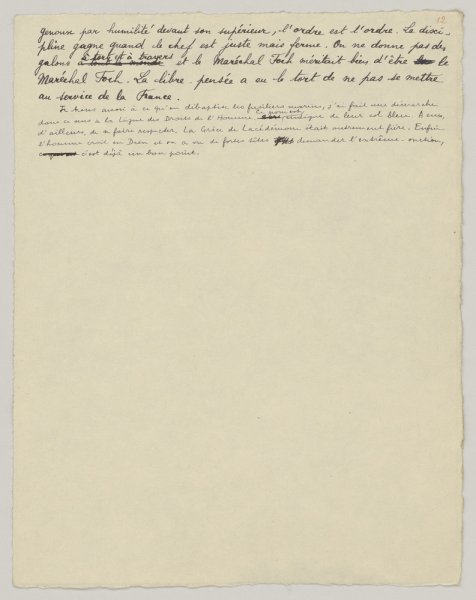 12
genoux par humilité devant son supérieur, l'ordre est l'ordre. La disci-
pline gagne quand le chef est juste mais ferme. On ne donne pas des
à tort et à travers
galons à tout le monde et le Maréchal Foch méritait bien d'être le
Maréchal Foch. La libre-pensée a eu le tort de ne pas se mettre
au service de la France.
Je tiens aussi à ce qu'on débaptise les fusiliers marins, j'ai fait une démarche
dans ce sens à la Ligue des Droits de l'Homme. indigne de leur col bleu. A eux,
d'ailleurs, de se faire respecter. La Grèce de Lacédémone était autrement fière. Enfin
l'homme croit en Dieu et on a vu de fortes têtes demander l'extrême-onction,
c'est déjà un bon point.